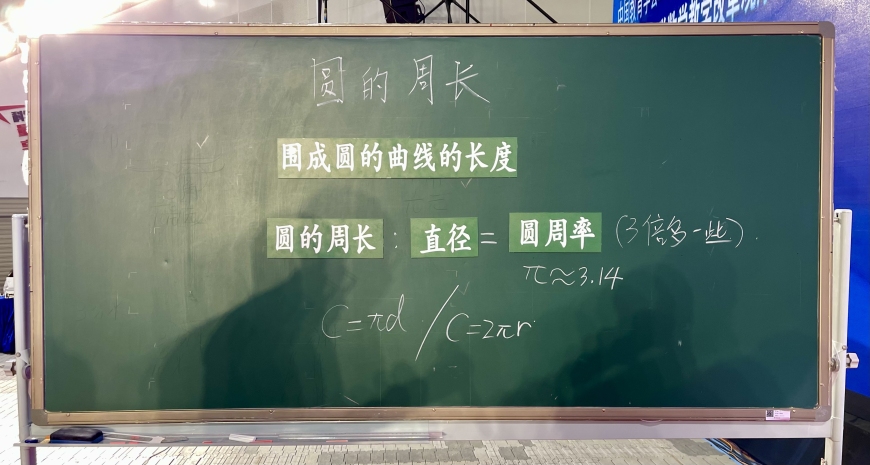 圆的周长
围成圆的曲线的长度
圆的周长 : 直径 = 圆周率 (3倍多一些).
π≈3.14
C=πd / C=2πr